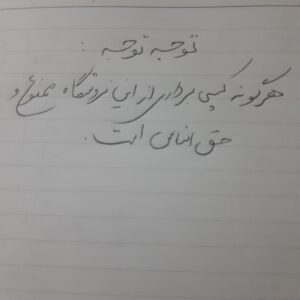 توجه توجه :
هرگونه کپی برداری از این فروشگاه ممنوع و
حق الناس است .